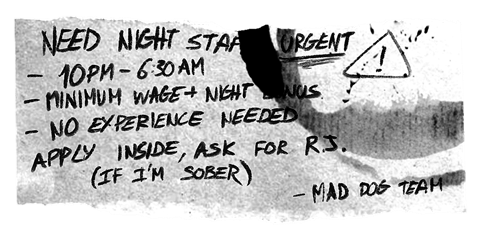 NEED NIGHT STAFF URGENT
- 10PM - 6:30AM
- MINIMUM WAGE + NIGHT BONUS
- NO EXPERIENCE NEEDED
APPLY INSIDE, ASK FOR R.J.
(IF I'M SOBER)
- MAD DOG TEAM